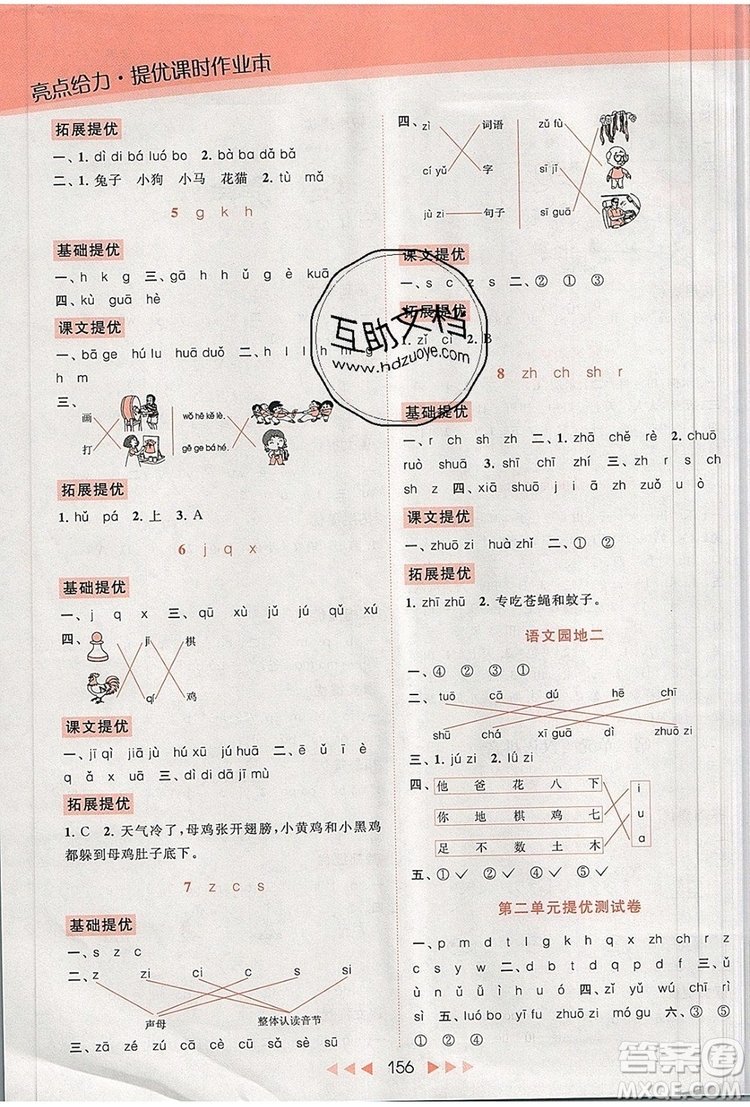 亮点给力·提优课时作业本
拓展提优
一、1. dì di bá luó bo 2. bà ba dǎ bǎ
二、1. 兔子 小狗 小马 花猫 2. tù mǎ
5 g k h
基础提优
一、h k g 三、g ǔ h ǔ g è kuā
四、kù guā hè
课文提优
一、bā ge hú lu huā duǒ 二、h l l h m g
h m
三、
画 wǒ hē kě lè.
打 gē ge bá hé.
拓展提优
1. hǔ pá 2. 上 3. A
6 j q x
基础提优
一、j q x 三、qū xù jù qú xū jú
四、 jī 棋
qí 鸡
课文提优
一、jī qì jiā jù hú xū jú huā 二、ē ǔ ǔ è
q ǎ x ǎ 三、dì dā jī mù
拓展提优
1. C 2. 天气冷了，母鸡张开翅膀，小黄鸡和小黑鸡
都躲到母鸡肚子底下。
7 z c s
基础提优
一、s z c
二、z zi ci c s si
声母 整体认读音节
三、
四、zì 词语 zǔ fù
cí yǔ 字 sī jī
jù zi 句子 sī guā
课文提优
一、s c z s 二、② ① ③
拓展提优
1. zǐ cí 2. B
8 zh ch sh r
基础提优
一、r ch sh zh 二、1. zhā chě rè 2. chuō
ruò shuō 三、
课文提优
一、zhuō zi huà zhǐ 二、③ ① ②
拓展提优
1. zhī zhū 2. 专吃苍蝇和蚊子。
语文园地二
一、④ ② ③ ①
二、tuō cā dú hē chī
shū chá xī guā zhuō zi
三、1. jú zi 2. lǘ zi
四、他 爸 花 八 下 i
你 地 棋 鸡 七 u
足 不 数 木 土 a
五、① ✓ ② ✓ ④ ✓ ⑤ ✓
第二单元提优测试卷
一、p m d t n l k q x zh r z
c s y w 二、d b t d p t d b f j
五、
① ② ④
156
互助文档
www.hdzuoye.com
答案圈
MXQE.COM